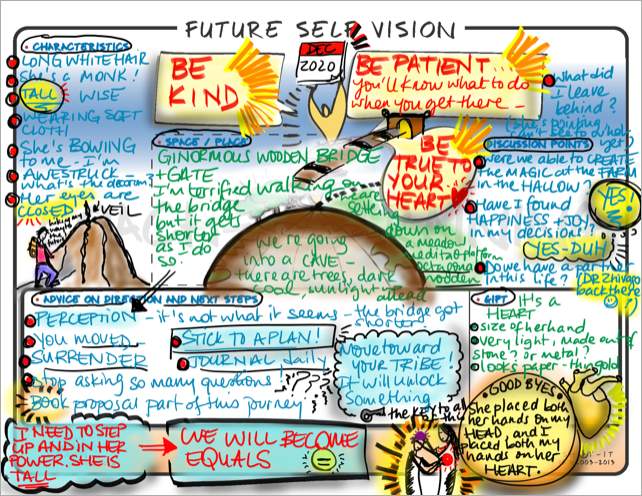 FUTURE SELF VISION
CHARACTERISTICS
LONG WHITE HAIR
She's a MONK!
TALL WISE
WEARING SOFT
CLOTH
She's BOWING
to me - I'm
AWESTRUCK -
Her eyes are
CLOSED
VEIL
BE
KIND
DEC
2020
BE PATIENT
you'll know what to do
when you get there -
BE
TRUE TO
YOUR
HEART
What did
I leave
behind?
SPACE / PLACE
GINORMOUS WOODEN BRIDGE
+ GATE
I'm terrified walking on
the bridge
but it gets
shorter
as I do
so.
we're going
into a CAVE -
there are trees, dark
cool, sunlight
ahead
we are
setting
down on
a meadow
meditation platform
octagonal
wooden
DISCUSSION POINTS
were we able to CREATE
the MAGIC at the FARM
in the HALLOW?
YES!
Have I found
HAPPINESS + JOY
in my decisions?
YES-DUH
Do we have a partner
in this life?
DR Zhivago
back there
ADVICE ON DIRECTION AND NEXT STEPS
PERCEPTION - it's not what it seems - the bridge got
shorter
YOU MOVED
SURRENDER
Stop asking so many questions!
Book proposal part of this journey
STICK TO A PLAN!
JOURNAL daily
???
Move toward
YOUR TRIBE!
It will unlock
something
the KEY to all
GIFT
it's a
HEART
size of her hand
very light, made out of
stone? or metal?
looks paper-thin gold
GOOD BYES
She placed both
her hands on my
HEAD, and I
placed both my
hands on her
HEART.
I NEED TO STEP
UP AND IN HER
POWER. SHE IS
TALL
WE WILL BECOME
EQUALS
=
2003-2013